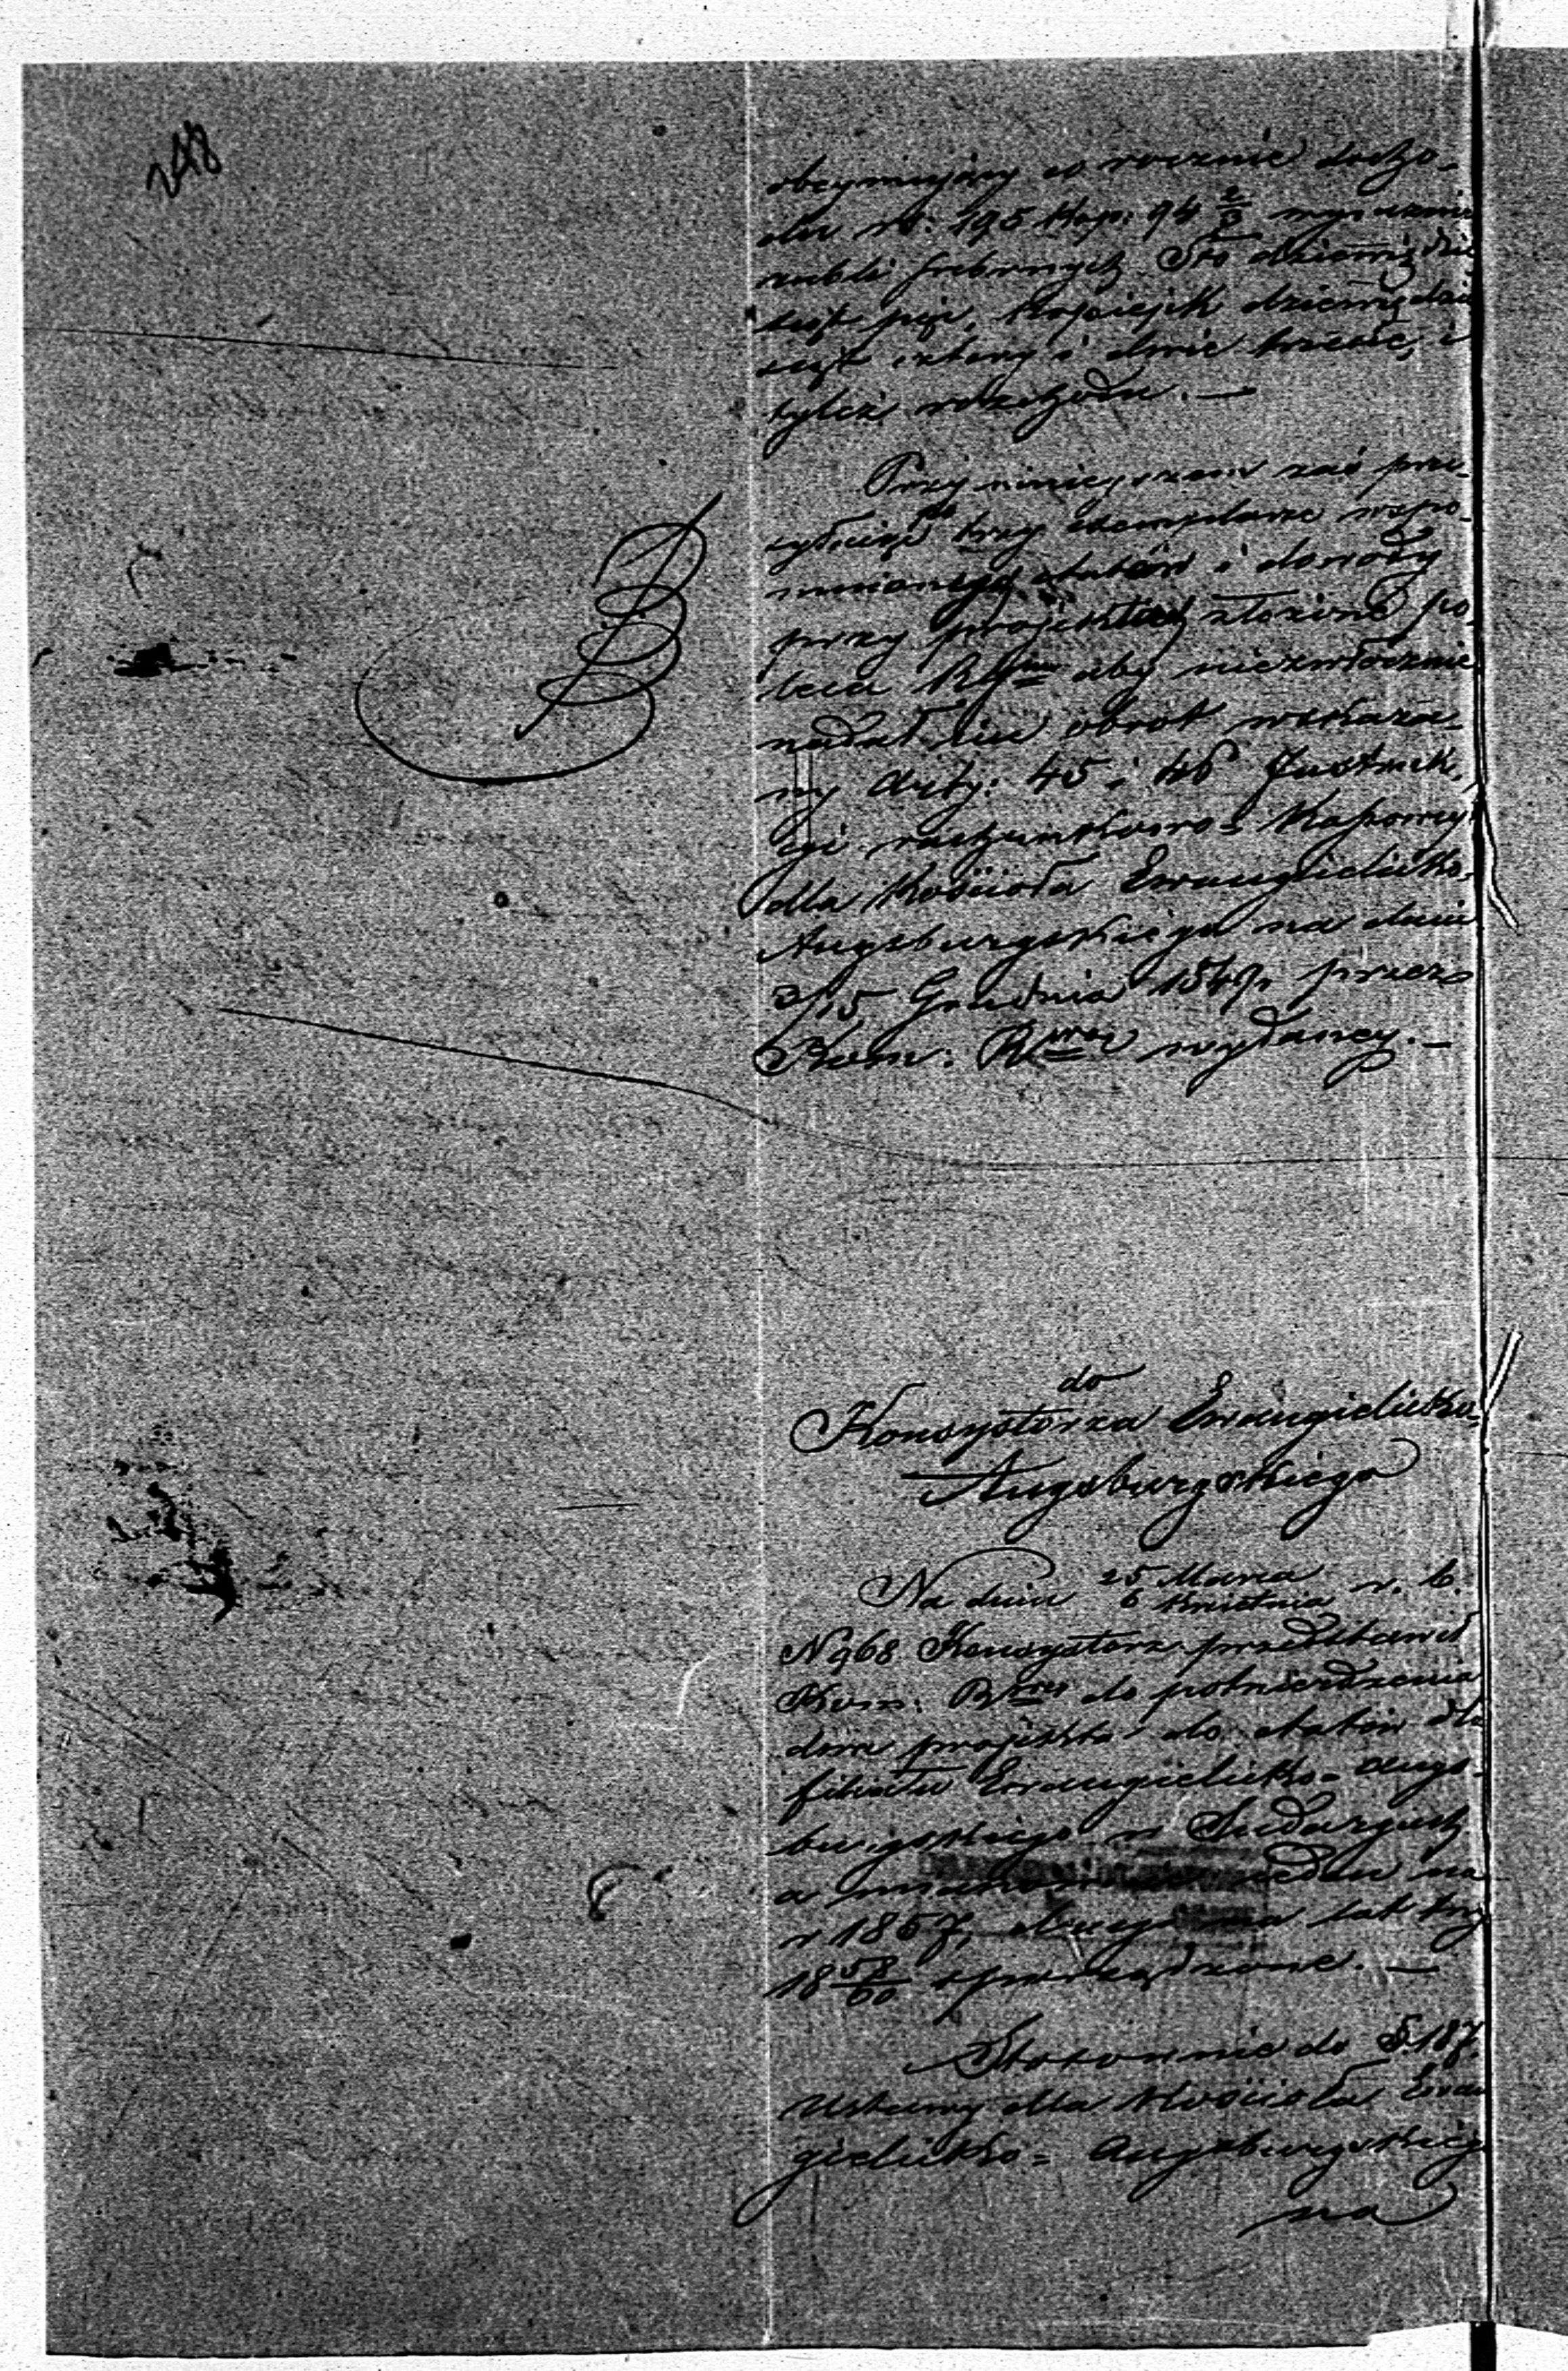 248
obeymujący w rocznie docho-
du rs: 195 kop: 94 2/3 wyraźnie
rubli srebrnych Sto dziewięćdzie
siąt pięć, kopiejek dziewięćdzie
siąt cztery i dwie trzecie, i
tyleż rozchodu. —
Przy niniejszem zaś prze-
syłając po trzy exemplarze wspo-
mnionych etatów i dowody
przy projektach złożone po-
leca K Rz aby niezwłocznie
nadał im obrot wskaza-
ny Arty: 45 i 46 Instruk-
cyi rachunkowo-Kassowey
dla Kościoła Ewangielicko-
Augsburgskiego na dniu
3/15 Grudnia 1849r. przez
Kom: Rz wydaney. —
do
Konsystorza Ewangielicko-
Augsburgskiego
Na dniu 25 Marca / 6 Kwietnia r. b.
N 968 Konsystorz przedstawił
Kom: Rz do potwierdzenia
dwa projekta do etatów dla
filiału Ewangielicko-Augs-
burgskiego w Sudargach
a mianowicie jeden na
r 1857, drugi na lat trzy
18 58/60 sporządzone. —
Stosownie do §. 187
Ustawy dla Kościoła Ewan
gielicko-Augsburgskiego
na